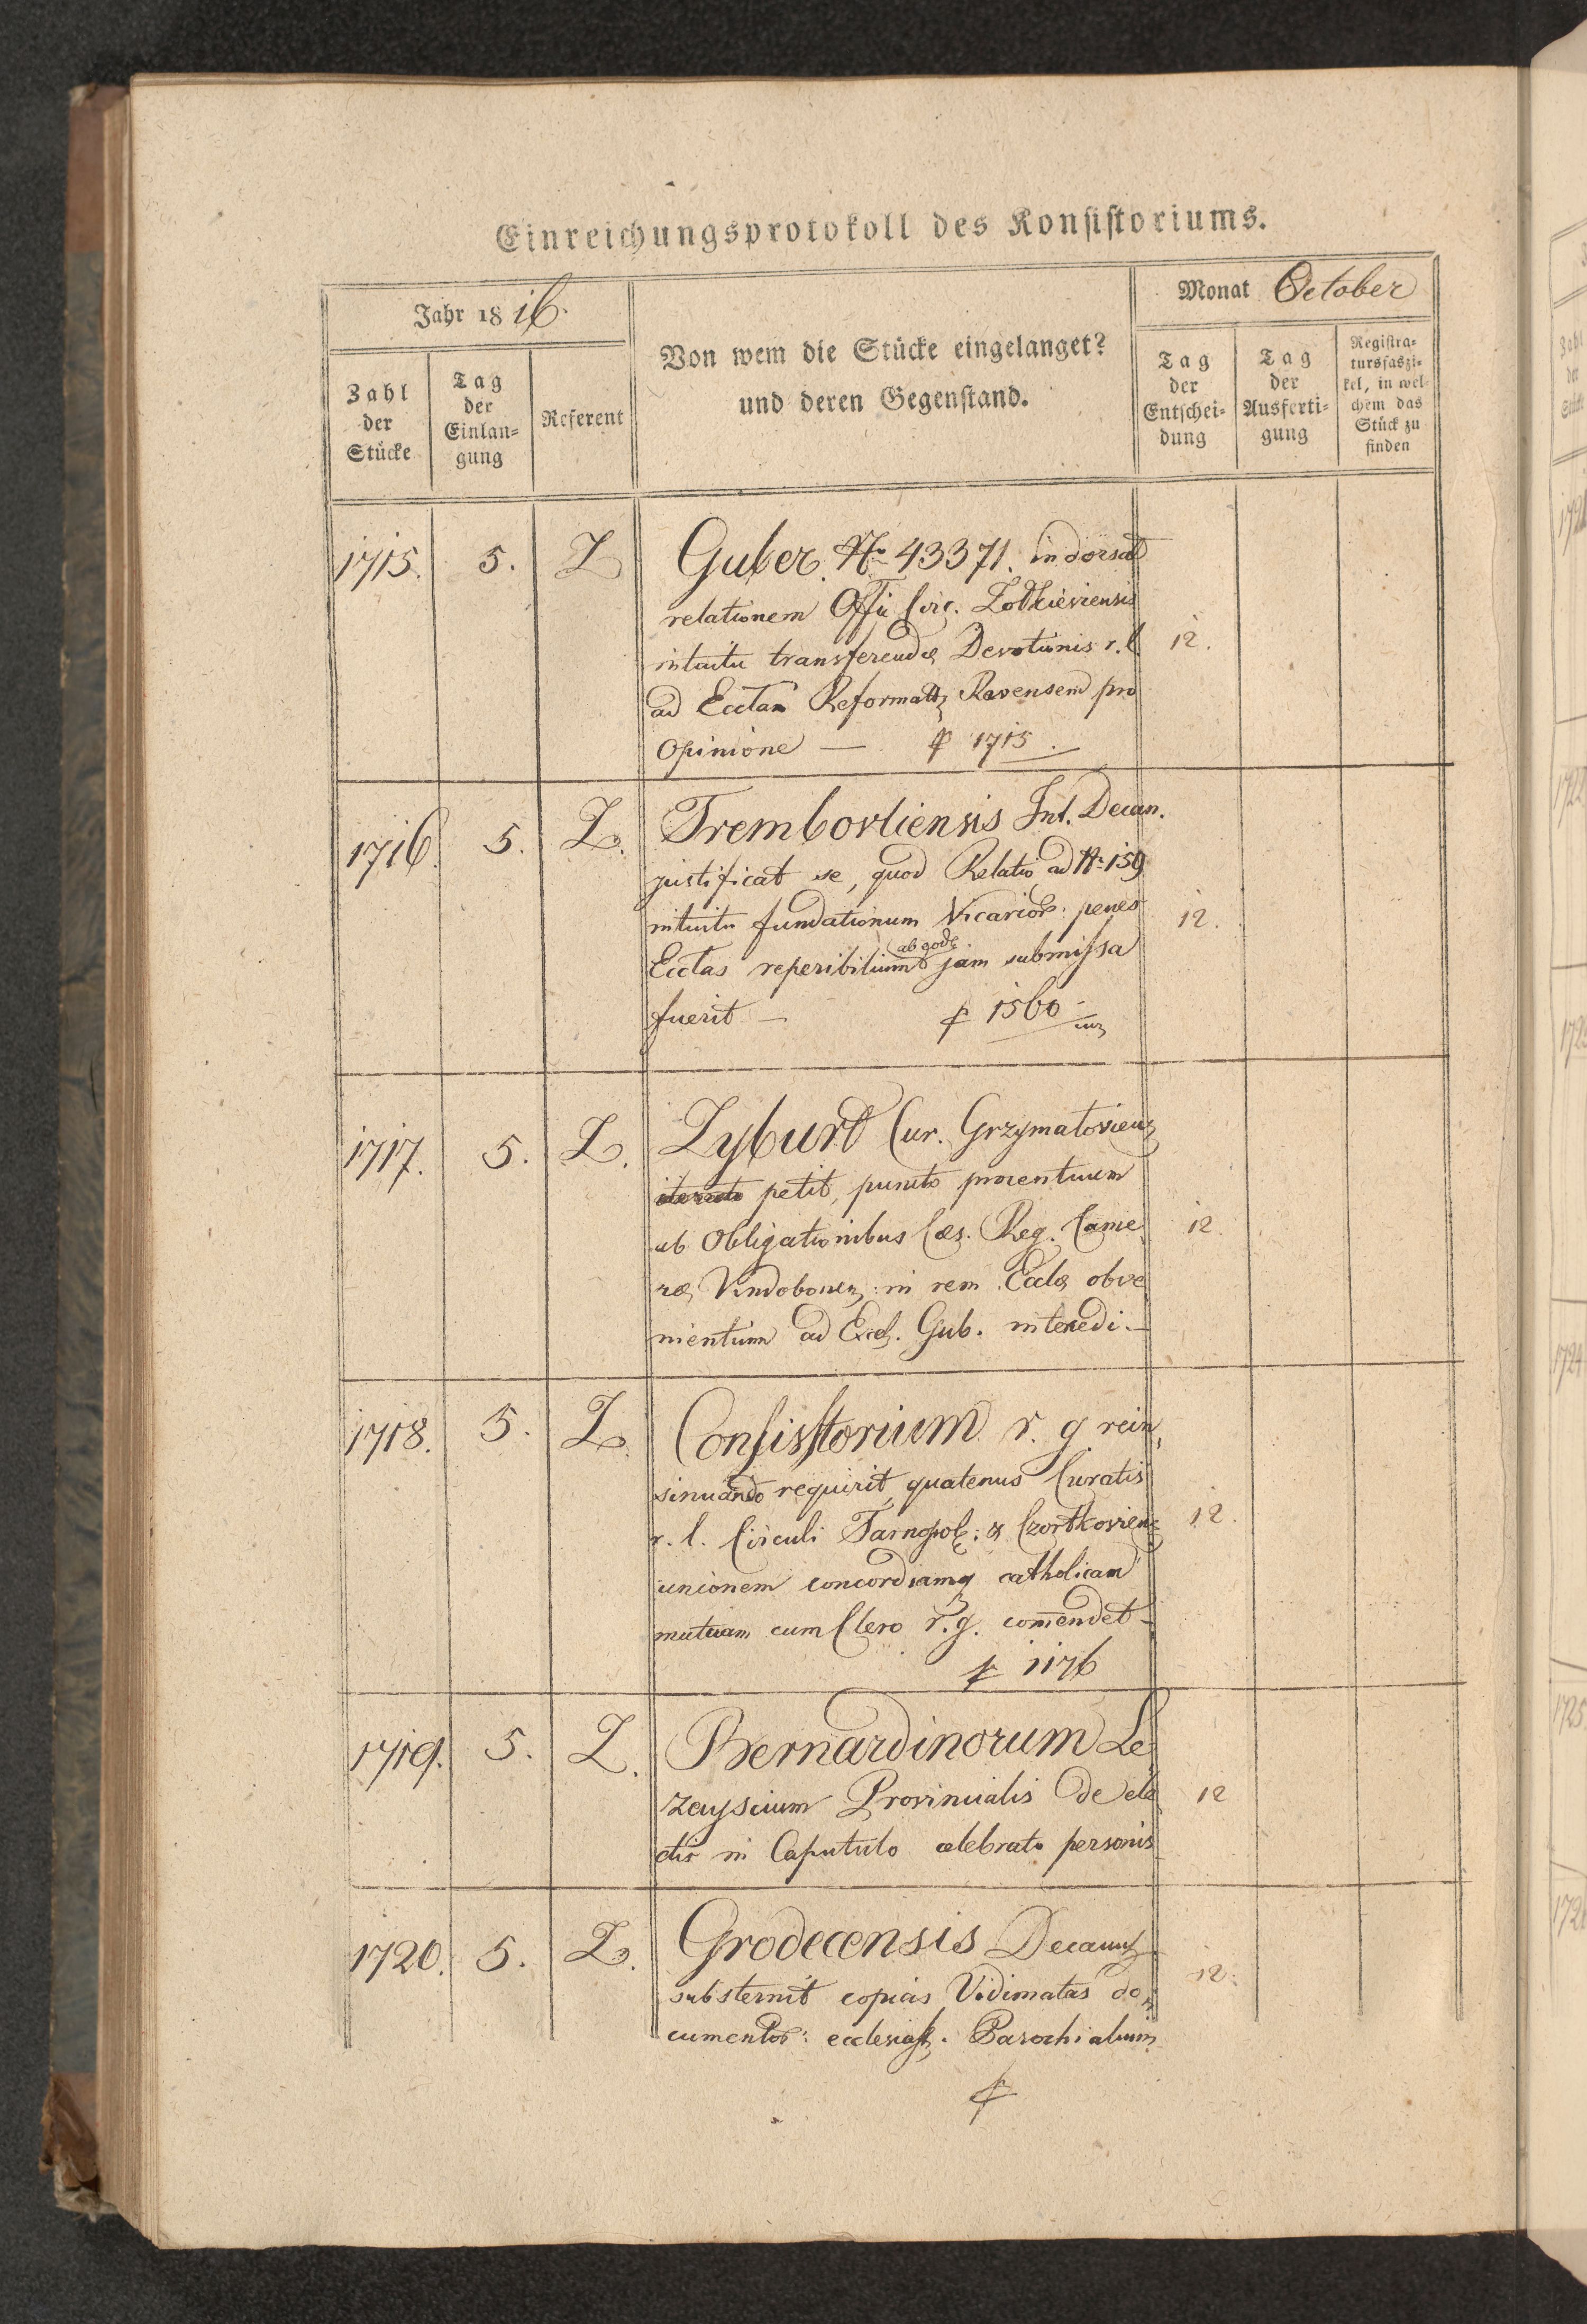 Einreichungsprotokoll des Konsistoriums.
Jahr 1816.
Monat October
Zahl der Stücke
Tag der Einlan=gung
Referent
Von wem die Stücke eingelanget?
und deren Gegenstand.
Tag der Entschei=dung
Tag der Ausferti=gung
Registra=tursfaszi=kel, in wel=chem das Stück zu finden
1715. 5. Z Guber. No 43371. indorsat
relationem Offii Circ. Zolkieviensis
intuitu transferendæ Devotionis r. l 12.
ad Ecctam Reformatt Ravensem pro
Opinione — 1715.
1716. 5. Z. Trembovliensis Int. Decan.
justificat se, quod Relatio ad No 159
intuitu fundationum Vicarior: penes 12.
ab eod
Ecctas reperibilium jam submissa
fuerit — 1560
1717. 5. Z. Zyburt Cur. Grzymaloviens
petit, puncto procentuum
ab Obligationibus Cæs. Reg. Came 12.
ræ Vindobonen: in rem Eccle obve
nientium ad Exc. Gub. intercedi. —
1718. 5. Z. Consisstorium r. g. rein,
sinuando requirit, quatenus Curatis
r. l. Circuli Tarnopol: & Czortkovien 12.
unionem concordiamq catholicam
mutuam cum Clero r. g. com̄endet —
1176
1719. 5. Z. Bernardinorum Le
zayscium Provincialis de ele 12
ctis in Caputulo celebrato personis
1720. 5. Z. Grodecensis Decanus
substernit copias Vidimatas do 12.
cumentor: ecclesiast. Parochialium